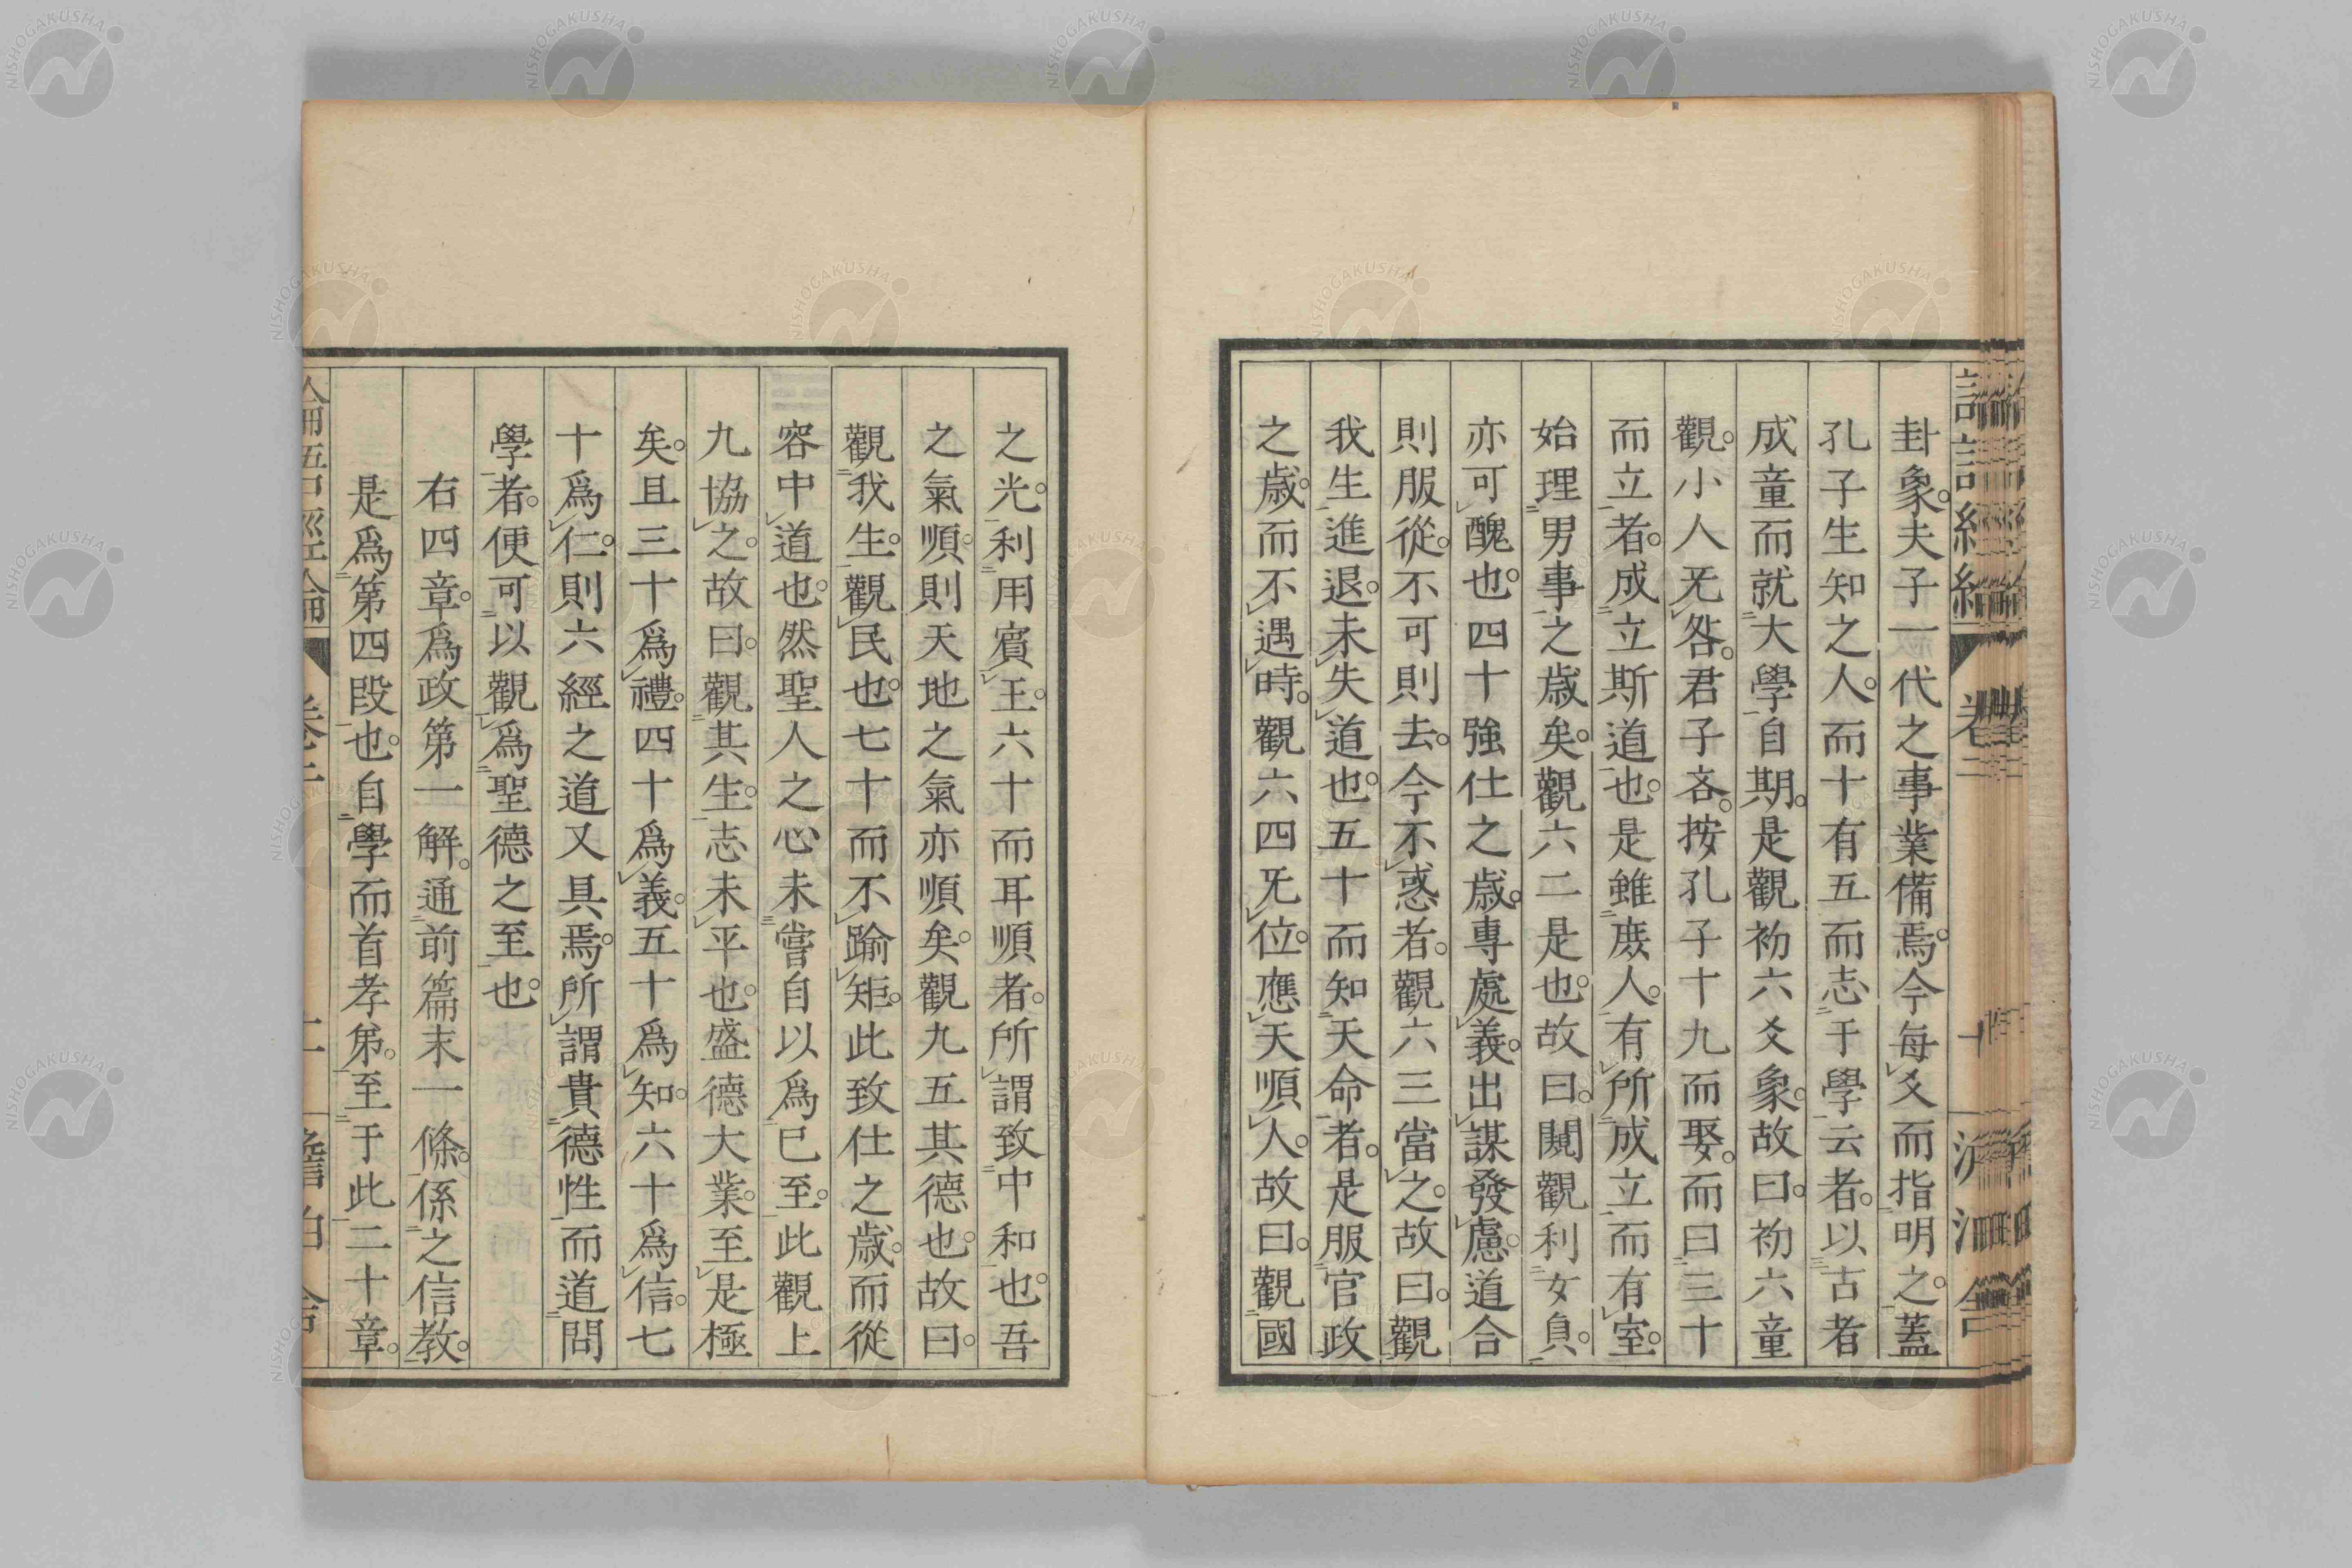 卦象。夫子一代之事業備焉。今每爻而指明之。蓋
孔子生知之人。而十有五而志于學云者。以古者
成童而就大學自期。是觀初六爻象。故曰。初六童
觀。小人无咎。君子吝。按孔子十九而娶。而曰三十
而立者。成立斯道也。是雖庶人。有所成立而有室。
始理男事之歲矣。觀六二是也。故曰。闚觀利女貞。
亦可醜也。四十強仕之歲。專處義。出謀發慮。道合
則服從。不可則去。今不惑者。觀六三當之。故曰。觀
我生進退。未失道也。五十而知天命者。是服官政
之歲。而不遇時。觀六四无位。應天順人。故曰。觀國
之光。利用賓王。六十而耳順者。所謂致中和也。吾
之氣順。則天地之氣亦順矣。觀九五其德也。故曰。
觀我生。觀民也。七十而不踰矩。此致仕之歲。而從
容中道也。然聖人之心未嘗自以爲已至。此觀上
九協之。故曰。觀其生。志未平也。盛德大業。至是極
矣。且三十爲禮。四十爲義。五十爲知。六十爲信。七
十爲仁。則六經之道又具焉。所謂貴德性而道問
學者。便可以觀爲聖德之至也。
右四章。爲政第一解。通前篇末一條。係之信教。
是爲第四段也。自學而首孝弟。至于此二十章。